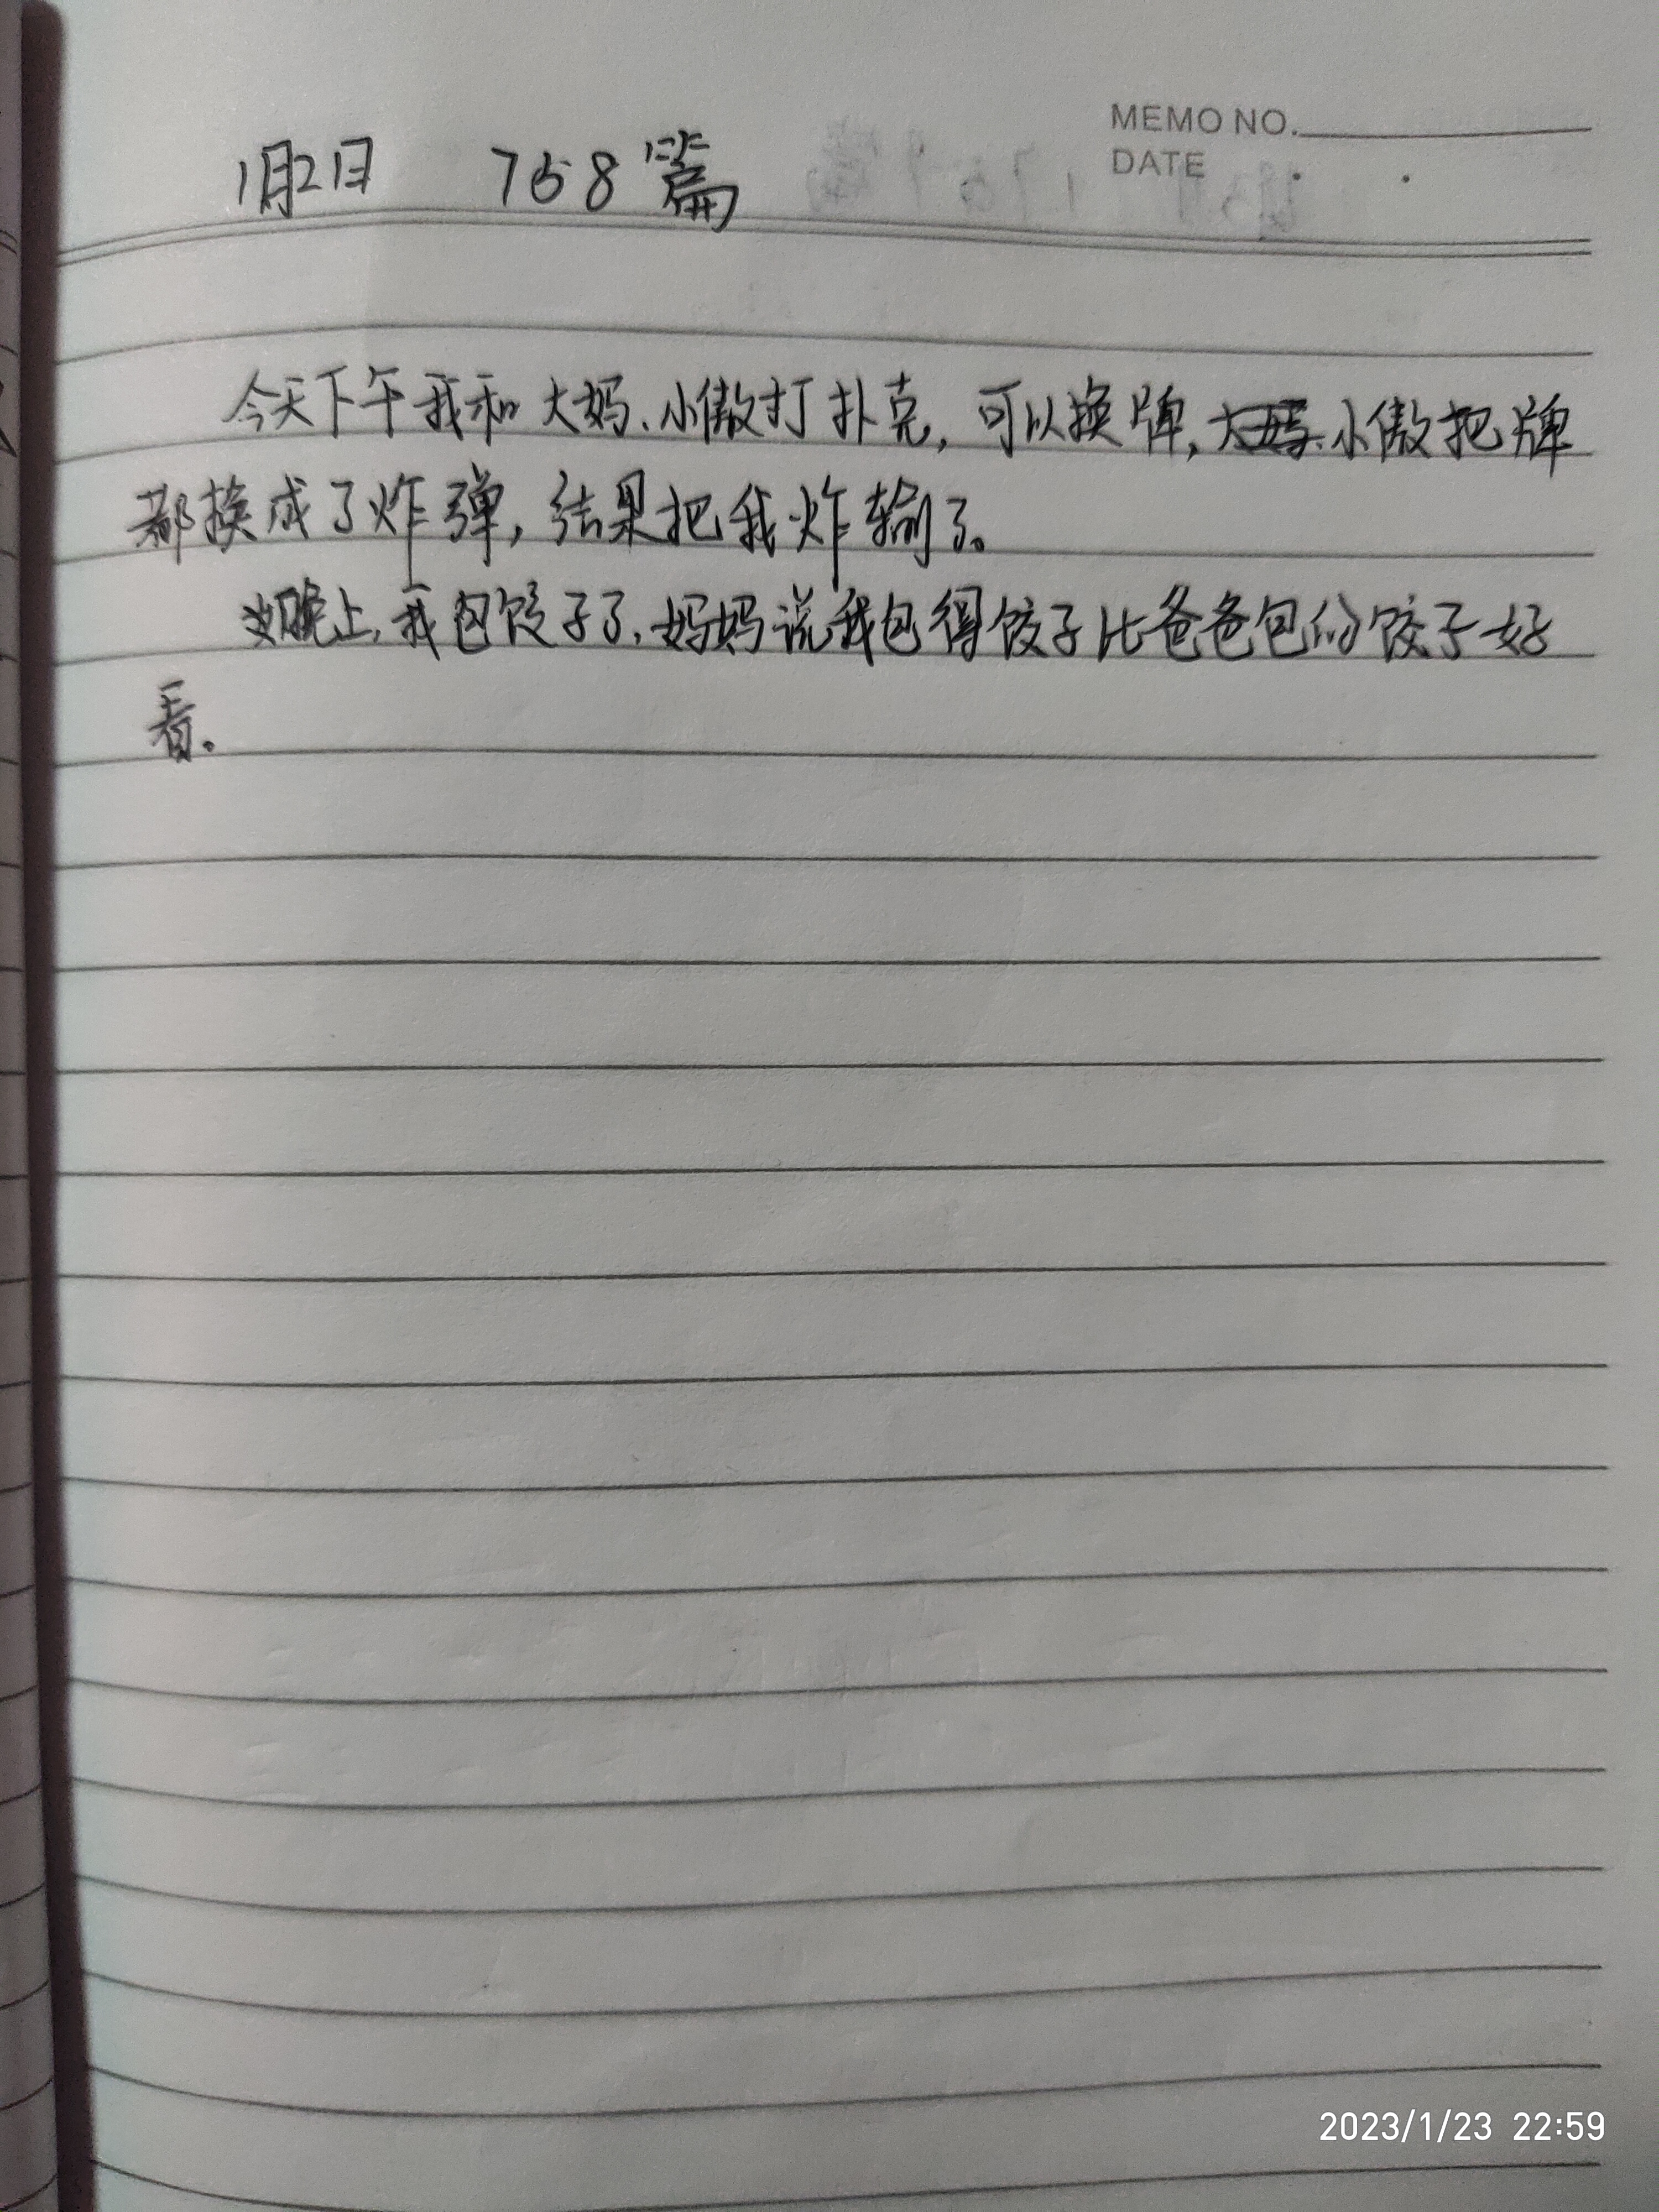 MEMO NO.
DATE . .
1月2日 758篇
今天下午我和大妈、小傲打扑克,可以换牌,小傲把牌
都换成了炸弹,结果把我炸输了。
晚上,我包饺子了,妈妈说我包得饺子比爸爸包的饺子好
看。
2023/1/23 22:59